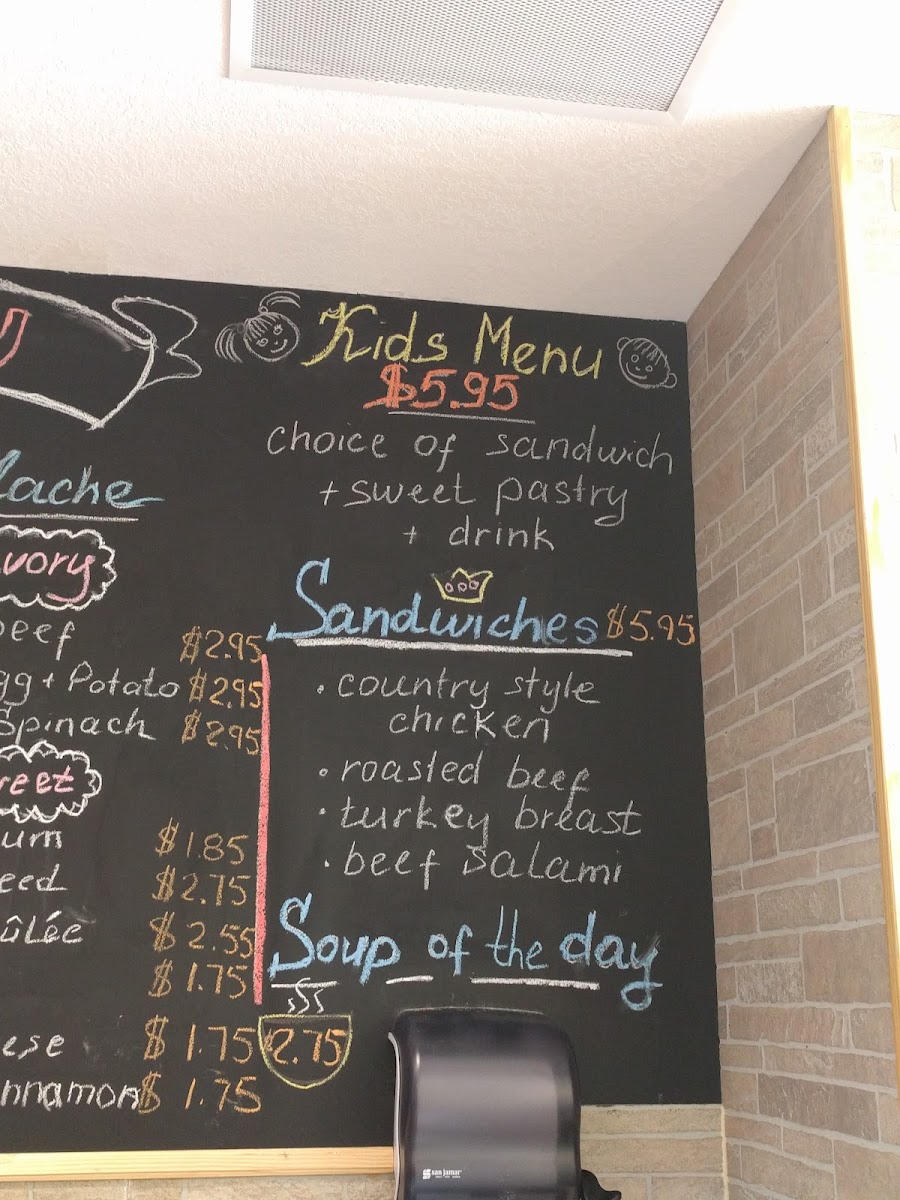 Kids Menu
$5.95
choice of sandwich
+ sweet pastry
+ drink
Sandwiches $5.95
• country style
chicken
• roasted beef
• turkey breast
• beef salami
Soup of the day
$2.75
lache
vory
beef $2.95
gg + Potato $2.95
Spinach $2.95
reet
um $1.85
eed $2.75
ûlée $2.55
$1.75
ese $1.75
nnamon $1.75
san jamar